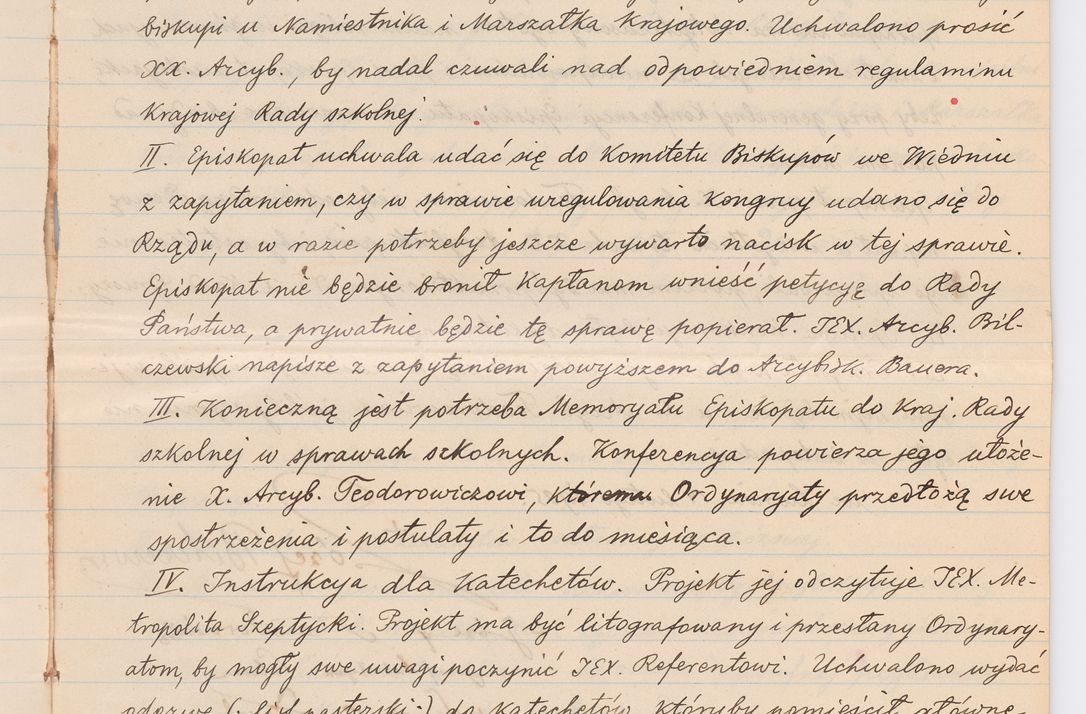 biskupi u Namiestnika i Marszałka Krajowego. Uchwalono prosić
XX. Arcyb., by nadal czuwali nad odpowiedniem regulaminu
Krajowej Rady szkolnej.
II. Episkopat uchwala udać się do Komitetu Biskupów we Wiedniu
z zapytaniem, czy w sprawie uregulowania Kongruy udano się do
Rządu, a w razie potrzeby jeszcze wywarto nacisk w tej sprawie.
Episkopat nie będzie bronił Kapłanom wnieść petycyę do Rady
Państwa, a prywatnie będzie tę sprawę popierał. JEX. Arcyb. Bil-
czewski napisze z zapytaniem powyższem do Arcybisk. Bauera.
III. Konieczną jest potrzeba Memoryału Episkopatu do Kraj. Rady
szkolnej w sprawach szkolnych. Konferencya powierza jego ułoże-
nie X. Arcyb. Teodorowiczowi, któremu Ordynaryaty przedłożą swe
spostrzeżenia i postulaty i to do miesiąca.
IV. Instrukcya dla Katechetów. Projekt jej odczytuje JEX. Me-
tropolita Szeptycki. Projekt ma być litografowany i przesłany Ordynary-
atom, by mogły swe uwagi poczynić JEX. Referentowi. Uchwalono wydać
odezwę (: list pasterski :) do Katechetów, któryby pomieścił główne